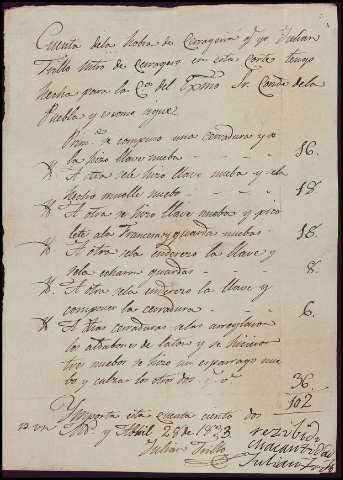 Cuenta dela hobra de Cerrageria q.e yo Julian
Trillo Mtro de Cerragero en esta Corte tengo
hecha para la C.a del Exmo Sr. Conde dela
Puebla y es como sigue
se compuso una cerradura y se
la hizo llave nueba - - - 16.
A otra se le hizo llave nueba y se la
hecho muelle nuebo - - - 18
A otra se hizo llave nueba y pico
lete ala francesa y guarda nuebas - 18.
A otra sela enderezo la llave y
sela echaron guardas - - - 8.
A otra sela enderezo la llave y
componer la cerradura - - 6.
A otras cerraduras selas arreglaron
los aldabones de laton y se hicieron
tres nuebos se hizo un esparrago nue
bo y calzar los otros dos 36.
102
Ymporta esta cuenta ciento dos
rs vn Md. y Abril 28 de 1833
Julian Trillo
rezibi
Julian Trillo